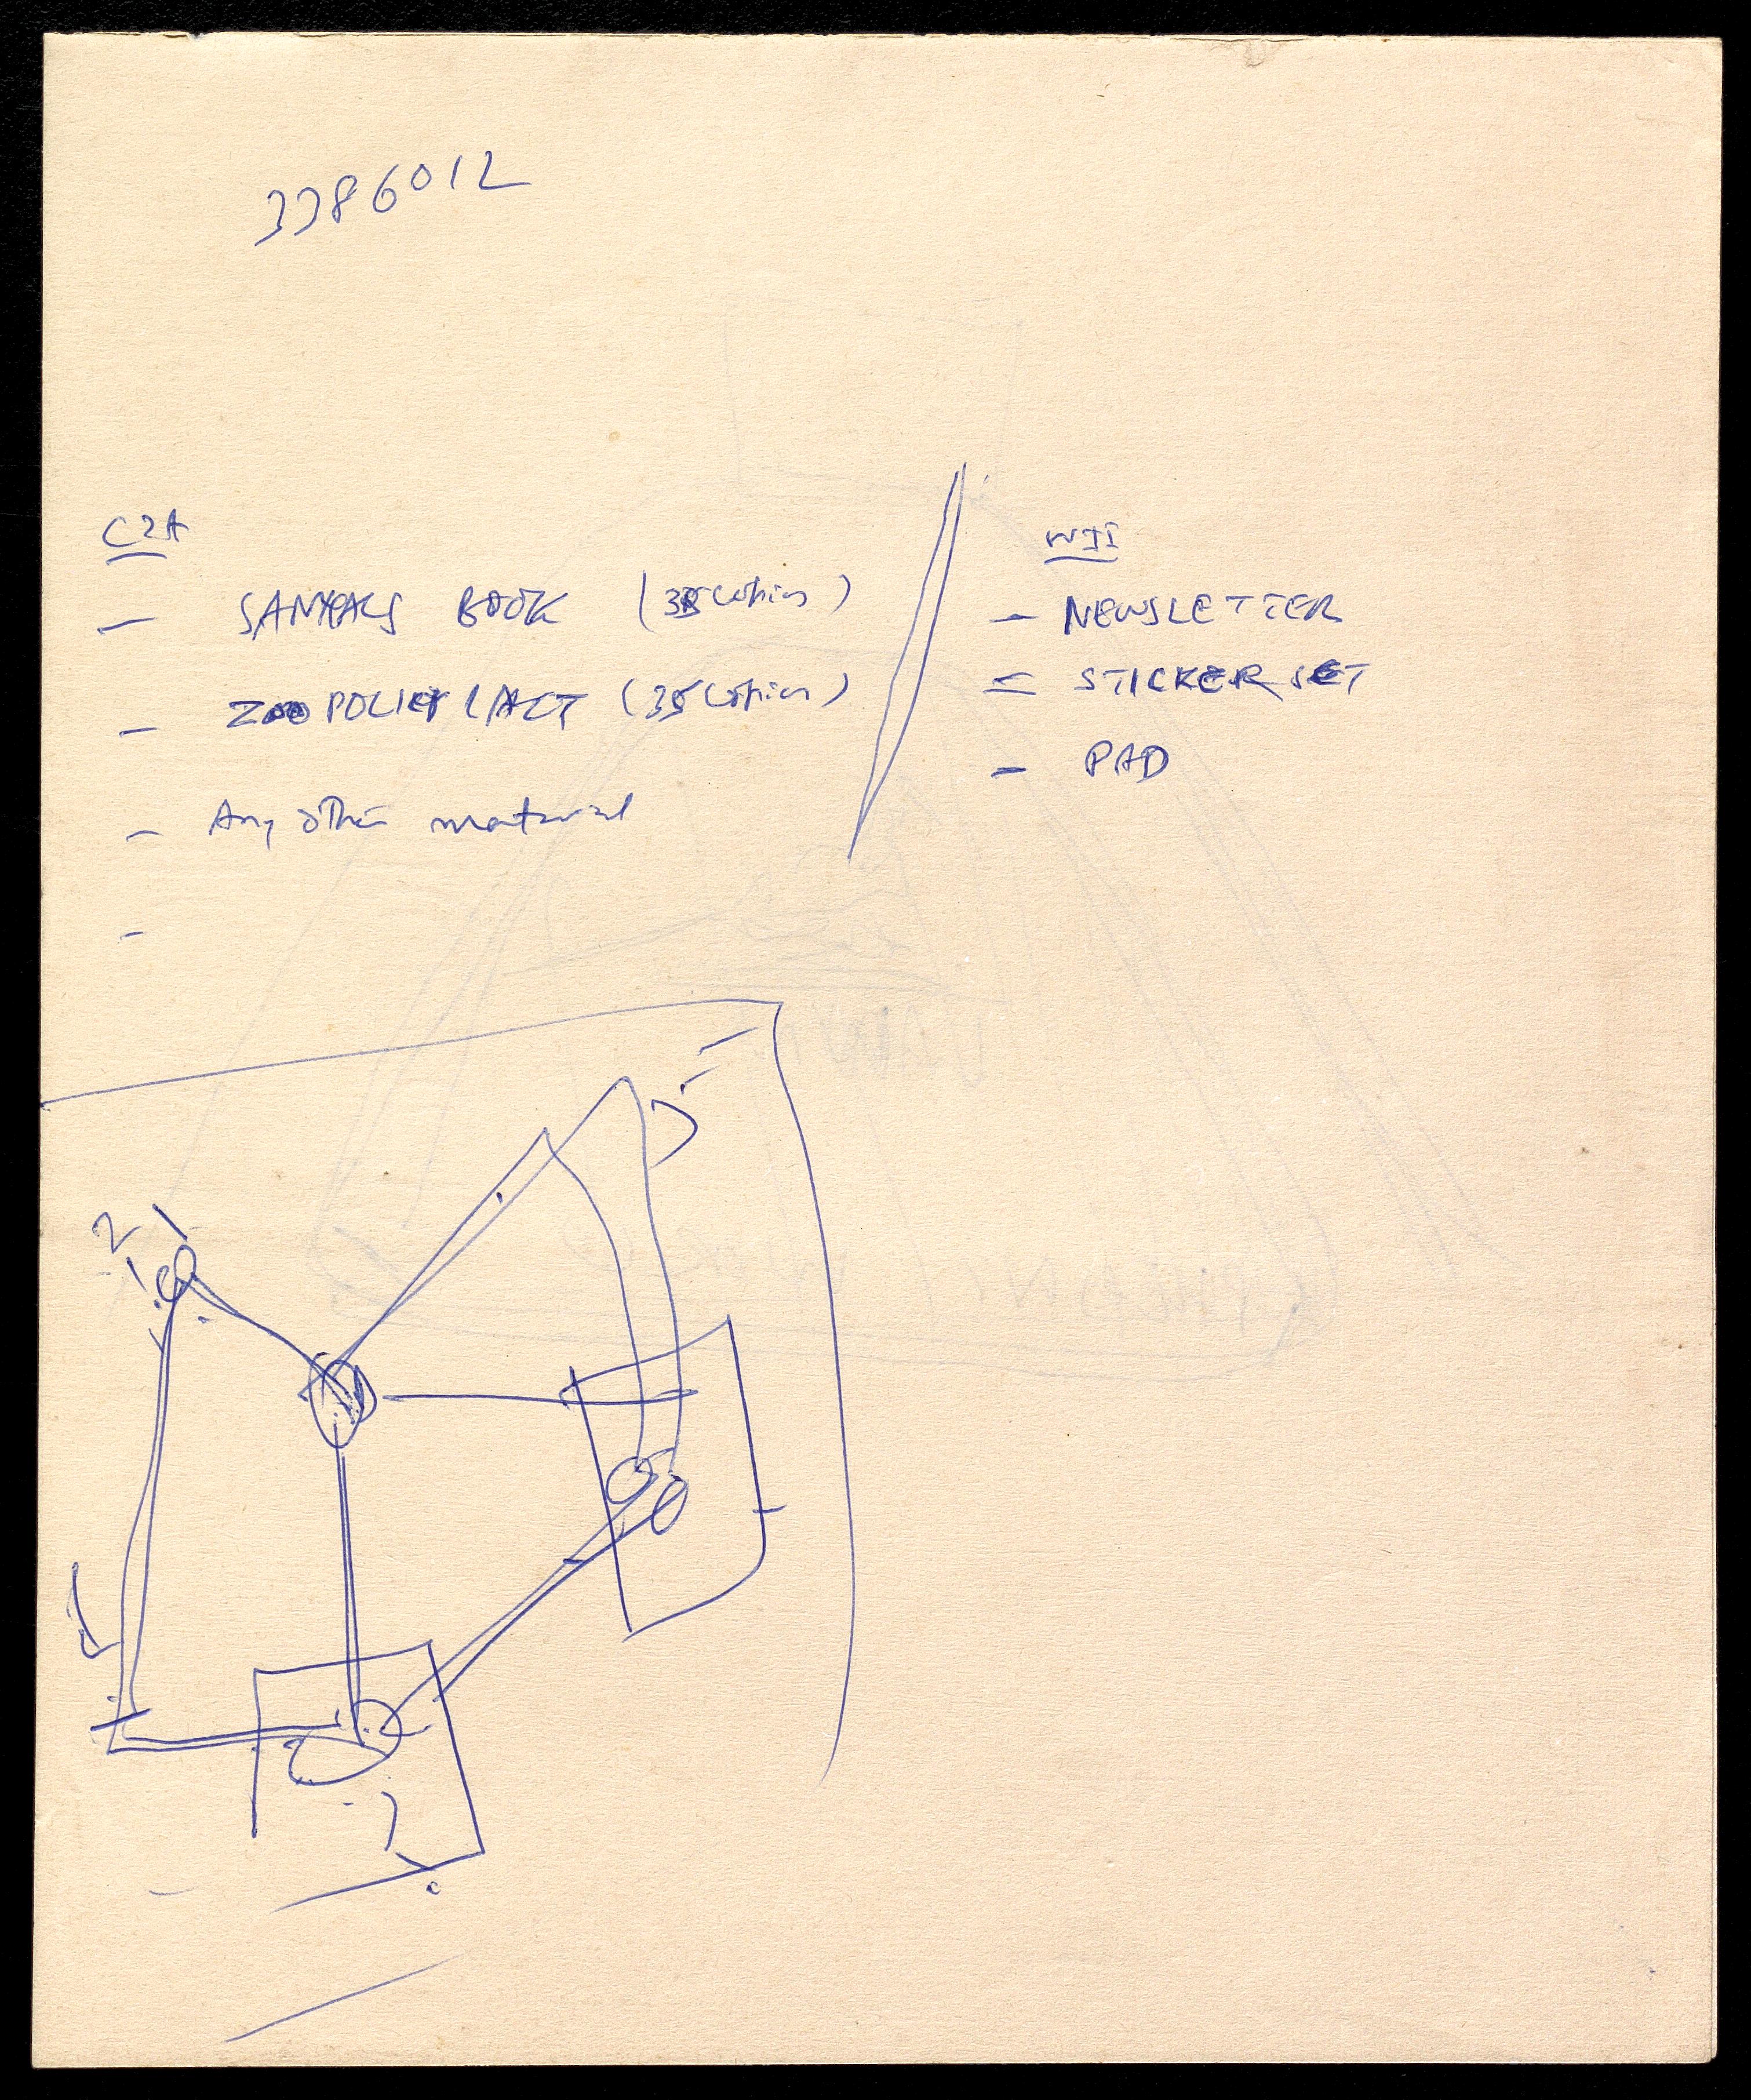 3386012
CZA
- SANYALS BOOK (35 copies)
- ZOO POLICY / ACT (35 copies)
- Any other material
-
WII
- NEWSLETTER
- STICKER SET
- PAD
2